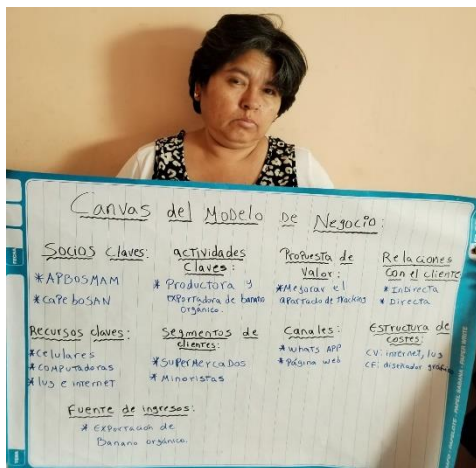 Canvas del Modelo De Negocio:
Socios Claves:
* APBOSMAM
* CAPebOSAN
actividades
Claves:
* Productora y
exportadora de banano
orgánico.
Propuesta de
Valor:
* Mejorar el
apartado de tracking
Relaciones
Con el cliente
* Indirecta
* Directa
Recursos claves:
* Celulares
* Computadoras
* lus e internet
Segmentos de
clientes:
* Supermercados
* Minoristas
Canales:
* Whats APP
* Página web
Estructura de
costes:
CV: internet, lus
CF: diseñador gráfico
Fuente de ingresos:
* Exportacion de
Banano orgánico.
FECHA:
TEMA: